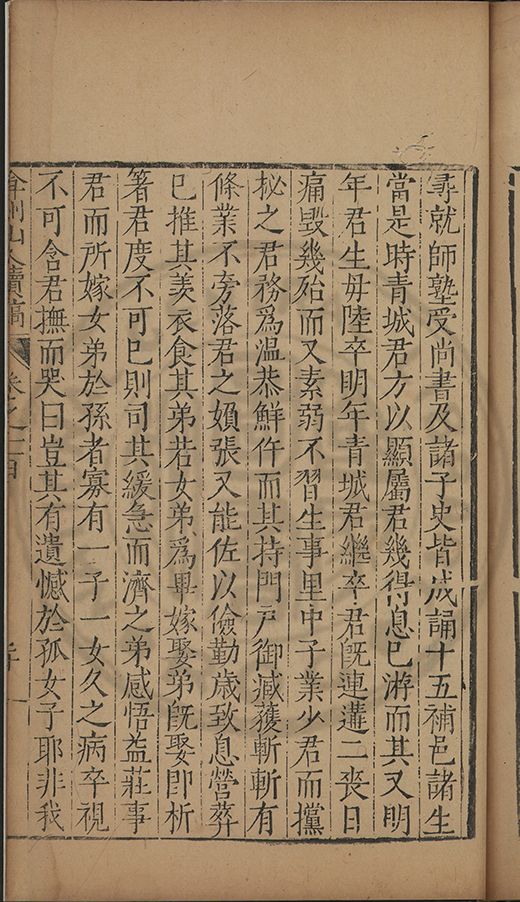 尋就師塾受尚書及諸子史皆成誦十五補邑諸生
當是時青城君方以顯屬君幾得息已游而其又明
年君生母陸卒明年青城君繼卒君旣連遘二喪日
痛毀幾殆而又素弱不習生事里中子業少君而黨
柲之君務爲溫恭鮮仵而其持門戸御臧獲斬斬有
條業不旁落君之嬪張又能佐以儉勤歲致息營葬
已推其羡衣食其弟若女弟爲畢嫁娶弟旣娶卽析
箸君度不可已則司其緩急而濟之弟感悟益莊事
君而所嫁女弟於孫者寡有一子一女久之病卒視
不可含君撫而哭曰豈其有遺憾於孤女子耶非我
弇州山人續稿 卷之